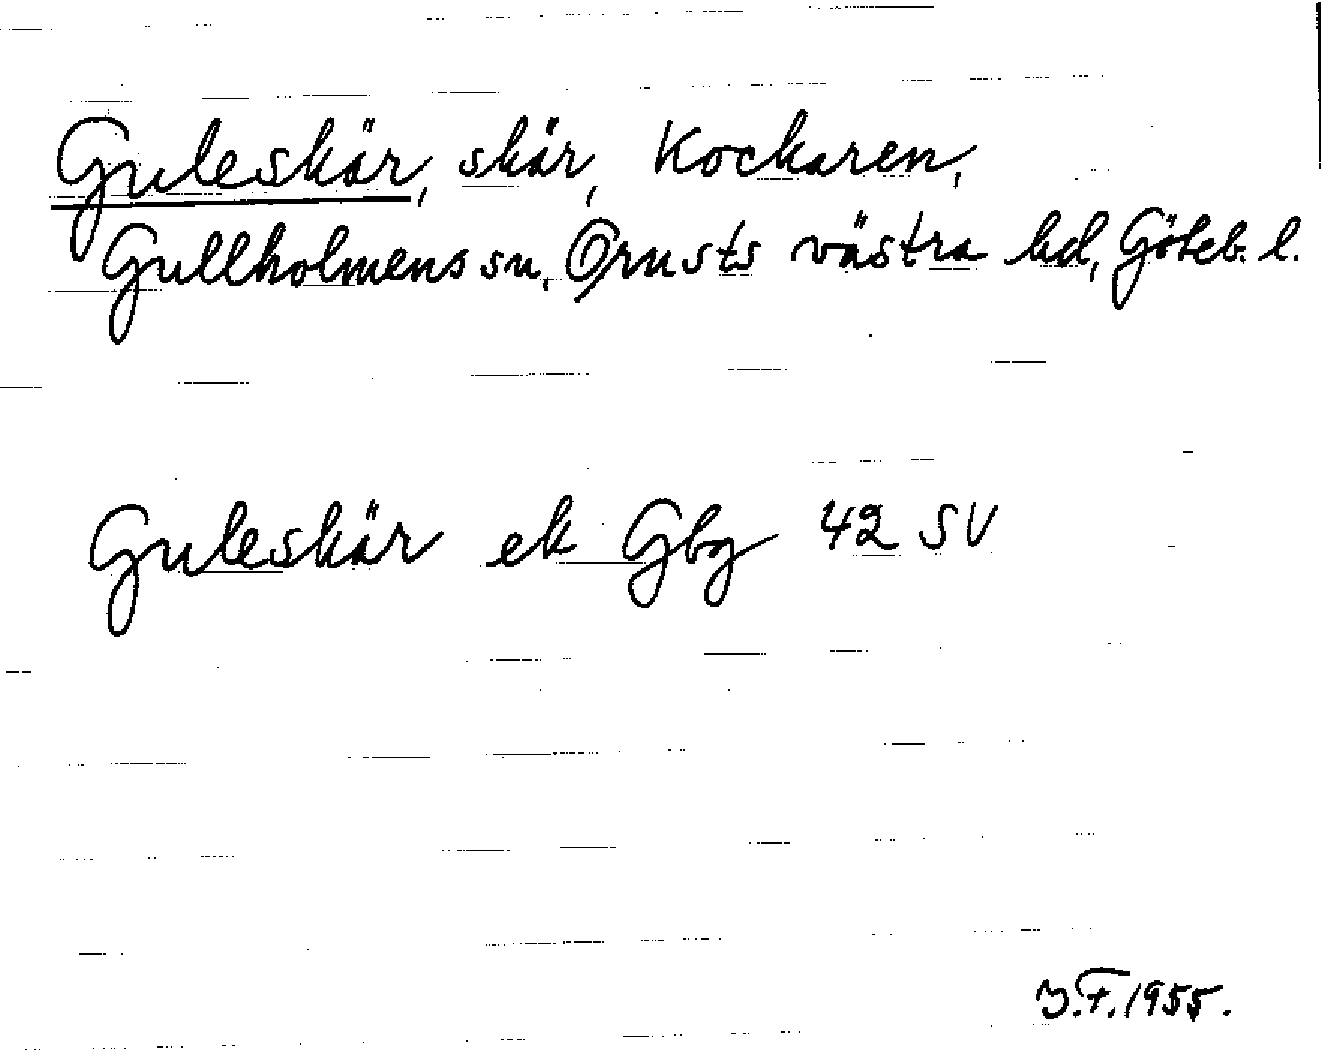 Guleskär, skär, Kockaren,
Gullholmens sn, Orusts västra hd, Göteb. l.
Guleskär ek Gbg 42 SV
Y.F. 1955.